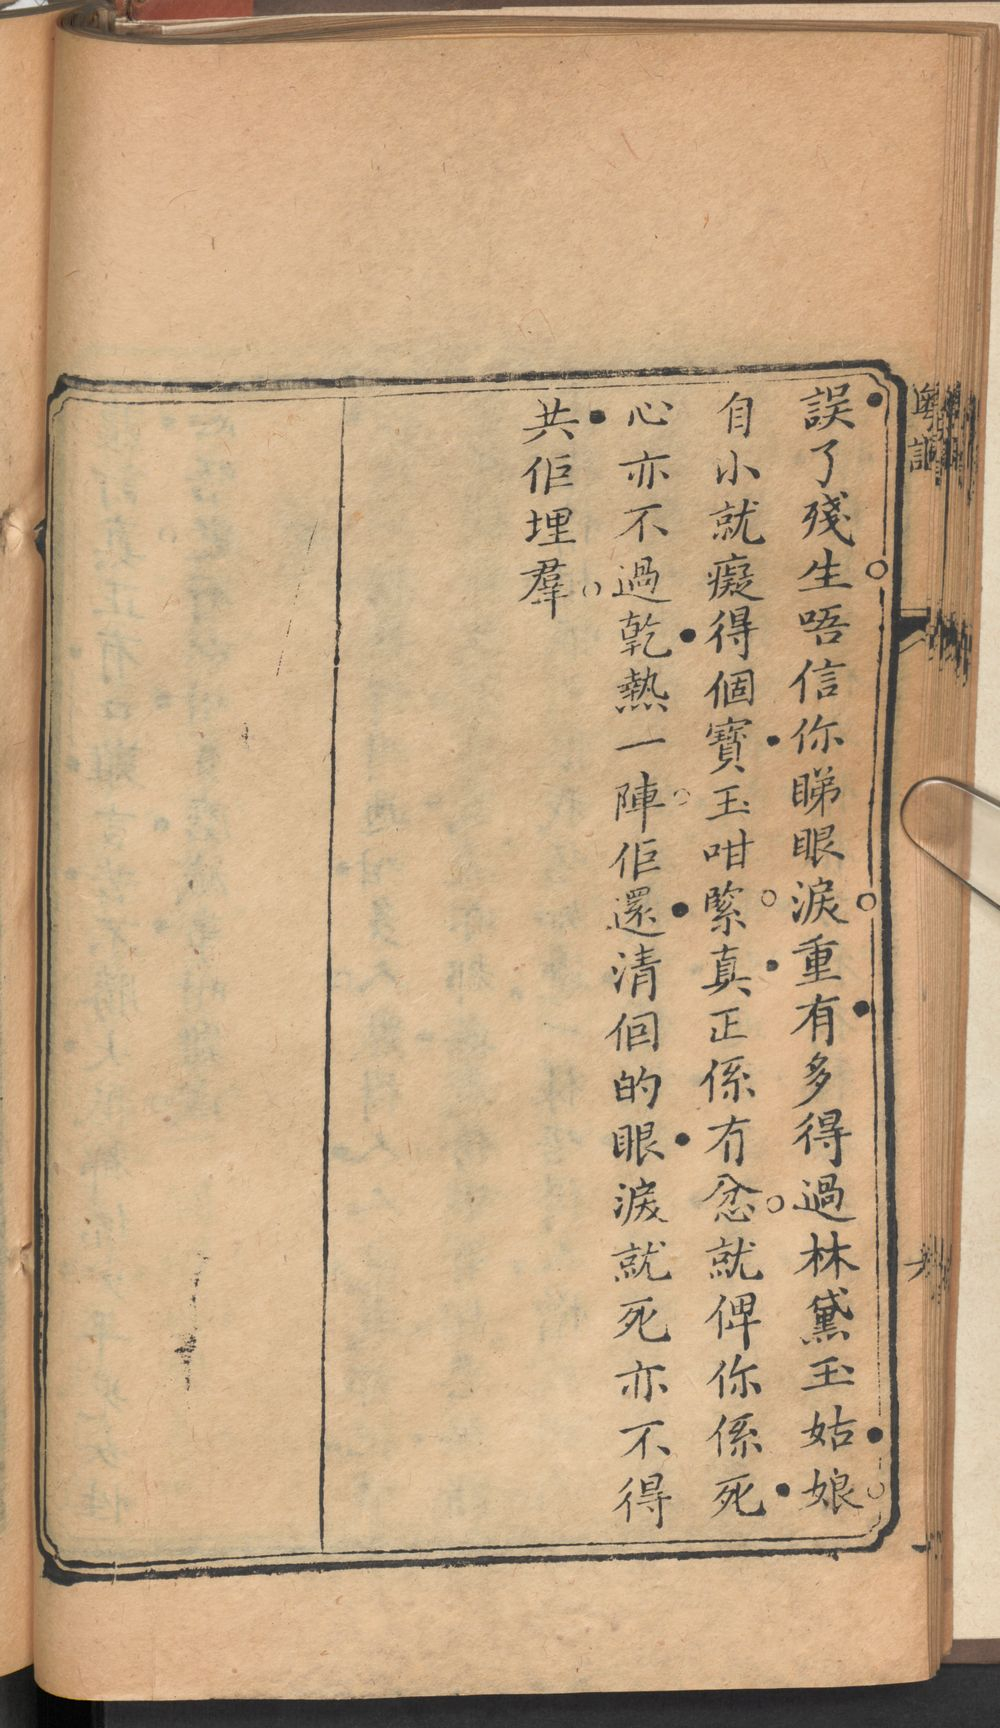 誤了殘生唔信你睇眼淚重有多得過林黛玉姑娘
自小就癡得個寶玉咁緊真正係冇忿就俾你係死
心亦不過乾熱一陣佢還清個的眼淚就死亦不得
共佢埋羣
粵謳